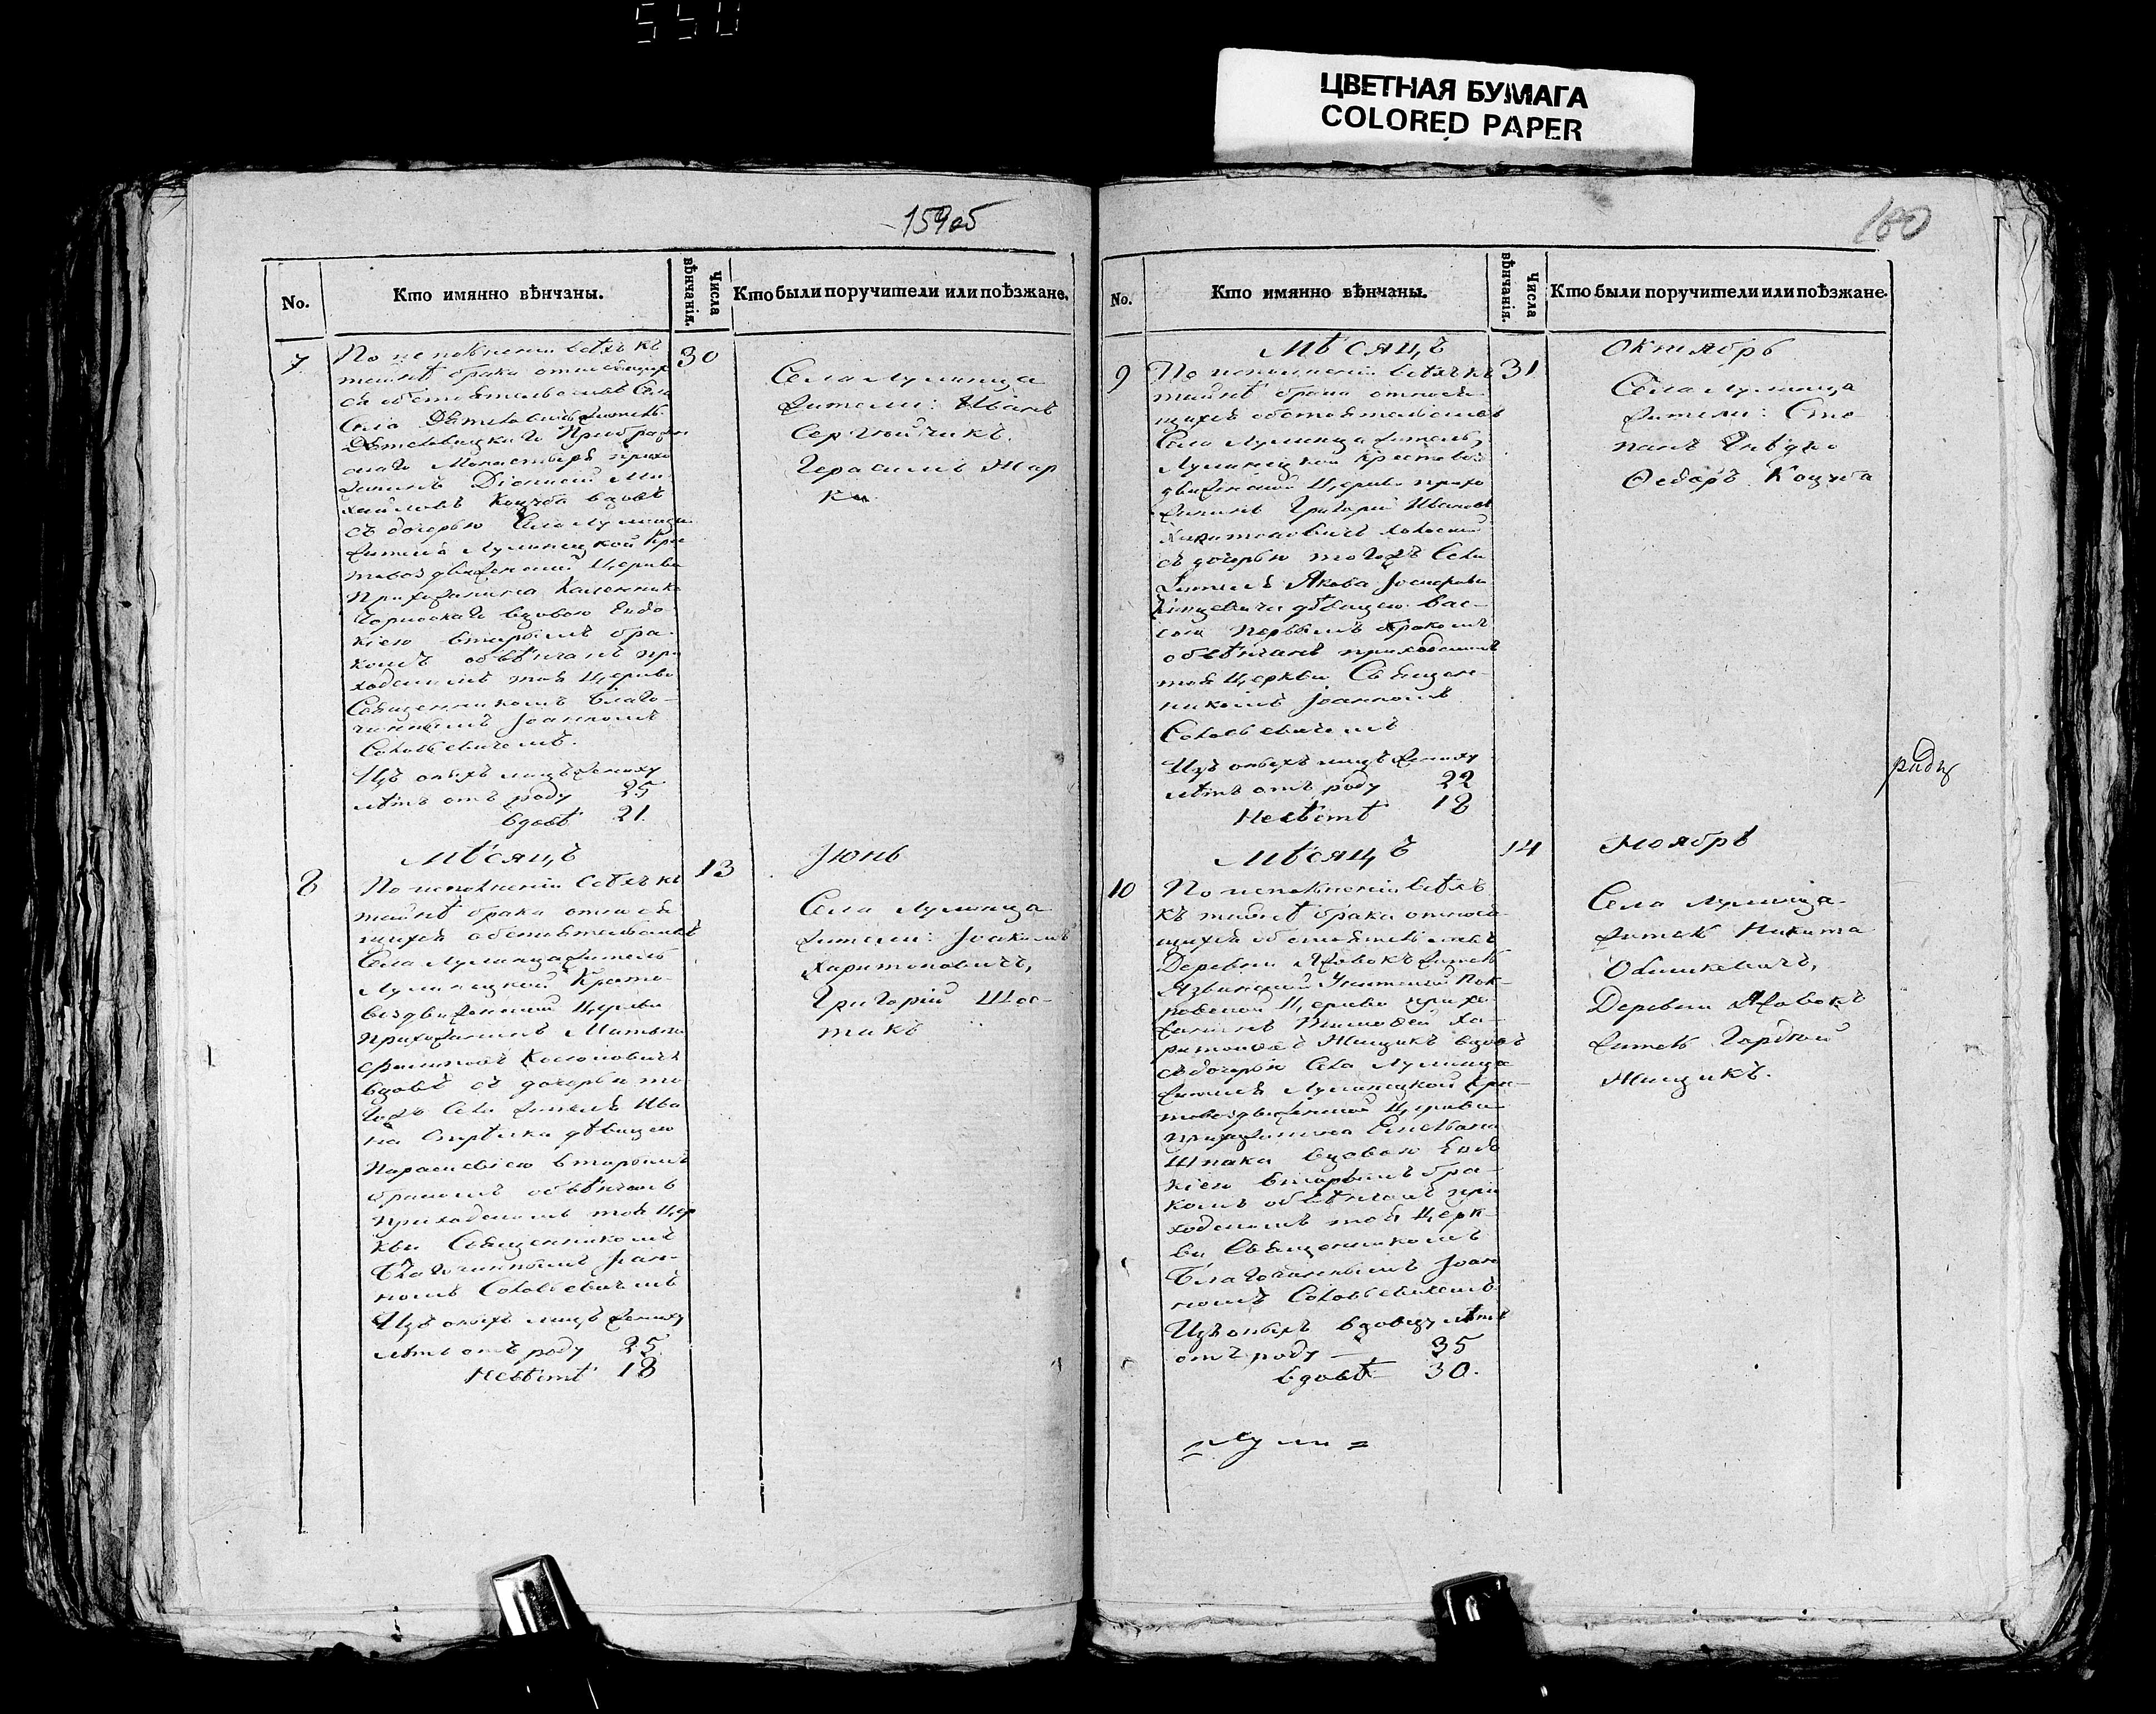 ЦВЕТНАЯ БУМАГА
COLORED PAPER
159об
No.
Кто имянно вѣнчаны.
Числа вѣнчанія.
Кто были поручители или поѣзжане.
7
30
По исполненіи всѣхъ къ
тайнѣ брака относящих
ся обстоятельствъ
Села
Монастыря прихо
жанинъ Діонисій Ми
хайловъ Коцуба вдовъ
съ дочерью Села Лулинца
жителя Лулинецкой Кре
стовоздвиженской Церкви
Прихожанина
вдовою Евдо
кіею вторымъ бра
комъ обвѣнчанъ при
ходскимъ той Церкви
Священникомъ Благо
чиннымъ Іоанномъ
Соловьевичемъ.
Изъ оныхъ лицъ жениху
лѣтъ отъ роду 25
вдовѣ 21.
Села Лулинца
жители: Иванъ
Герасимъ Жар
ко
Мѣсяцъ
Іюнь
8
13
По исполненіи всѣхъ къ
тайнѣ брака относя
щихся обстоятельствъ
Села Лулинца житель
Лулинецкой Кресто
воздвиженской Церкви
Прихожанинъ
вдовъ съ дочерью то
гожъ Села жителя Ива
на дѣвицею
Параскевіею вторымъ
бракомъ обвѣнчанъ
приходскимъ той Цер
кви Священникомъ
Благочиннымъ Іоан
номъ Соловьевичемъ
Изъ оныхъ лицъ жениху
лѣтъ отъ роду 25.
Невѣстѣ 18
Села Лулинца
жители: Іоакимъ
Харитоновичъ,
Григорій Шос
такъ
180
No.
Кто имянно вѣнчаны.
Числа вѣнчанія.
Кто были поручители или поѣзжане.
Мѣсяцъ
Октябрь
9
31
По исполненіи всѣхъ къ
тайнѣ брака относя
щихся обстоятельствъ
Села Лулинца житель,
Лулинецкой Крестовоз
движенской Церкви прихо
жанинъ Григорій Ивановъ
Харитоновичъ холостый
съ дочерью тогожъ Села
жителя Якова Іосифова
дѣвицею Вас
сою первымъ бракомъ
обвѣнчанъ приходскимъ
той Церкви Священ
никомъ Іоанномъ
Соловьевичемъ
Изъ оныхъ лицъ жениху
лѣтъ отъ роду 22
Невѣстѣ 18
Села Лулинца
жители: Сте
панъ
Ѳедоръ Коцуба
Мѣсяцъ
Ноябрь
10
14
По исполненіи всѣхъ
къ тайнѣ брака относя
щихся обстоятельствъ
Деревни Язвокъ житель
Язвинской Уніятской Пок
ровской Церкви прихо
жанинъ Тимофей Ха
ритоновъ Жищикъ вдовъ
съ дочерью Села Лулинца
жителя Лулинецкой Кре
стовоздвиженской Церкви
прихожанина Емельяна
Шпака вдовою Евдо
кіею вторымъ бра
комъ обвѣнчанъ при
ходскимъ той Церк
ви Священникомъ
Благочиннымъ Іоан
номъ Соловьевичемъ
Изъ оныхъ вдовцу лѣтъ
отъ роду — 35
вдовѣ 30.
Села Лулинца
житель Никита
Деревни Язвокъ
житель Гордѣй
Жищикъ.